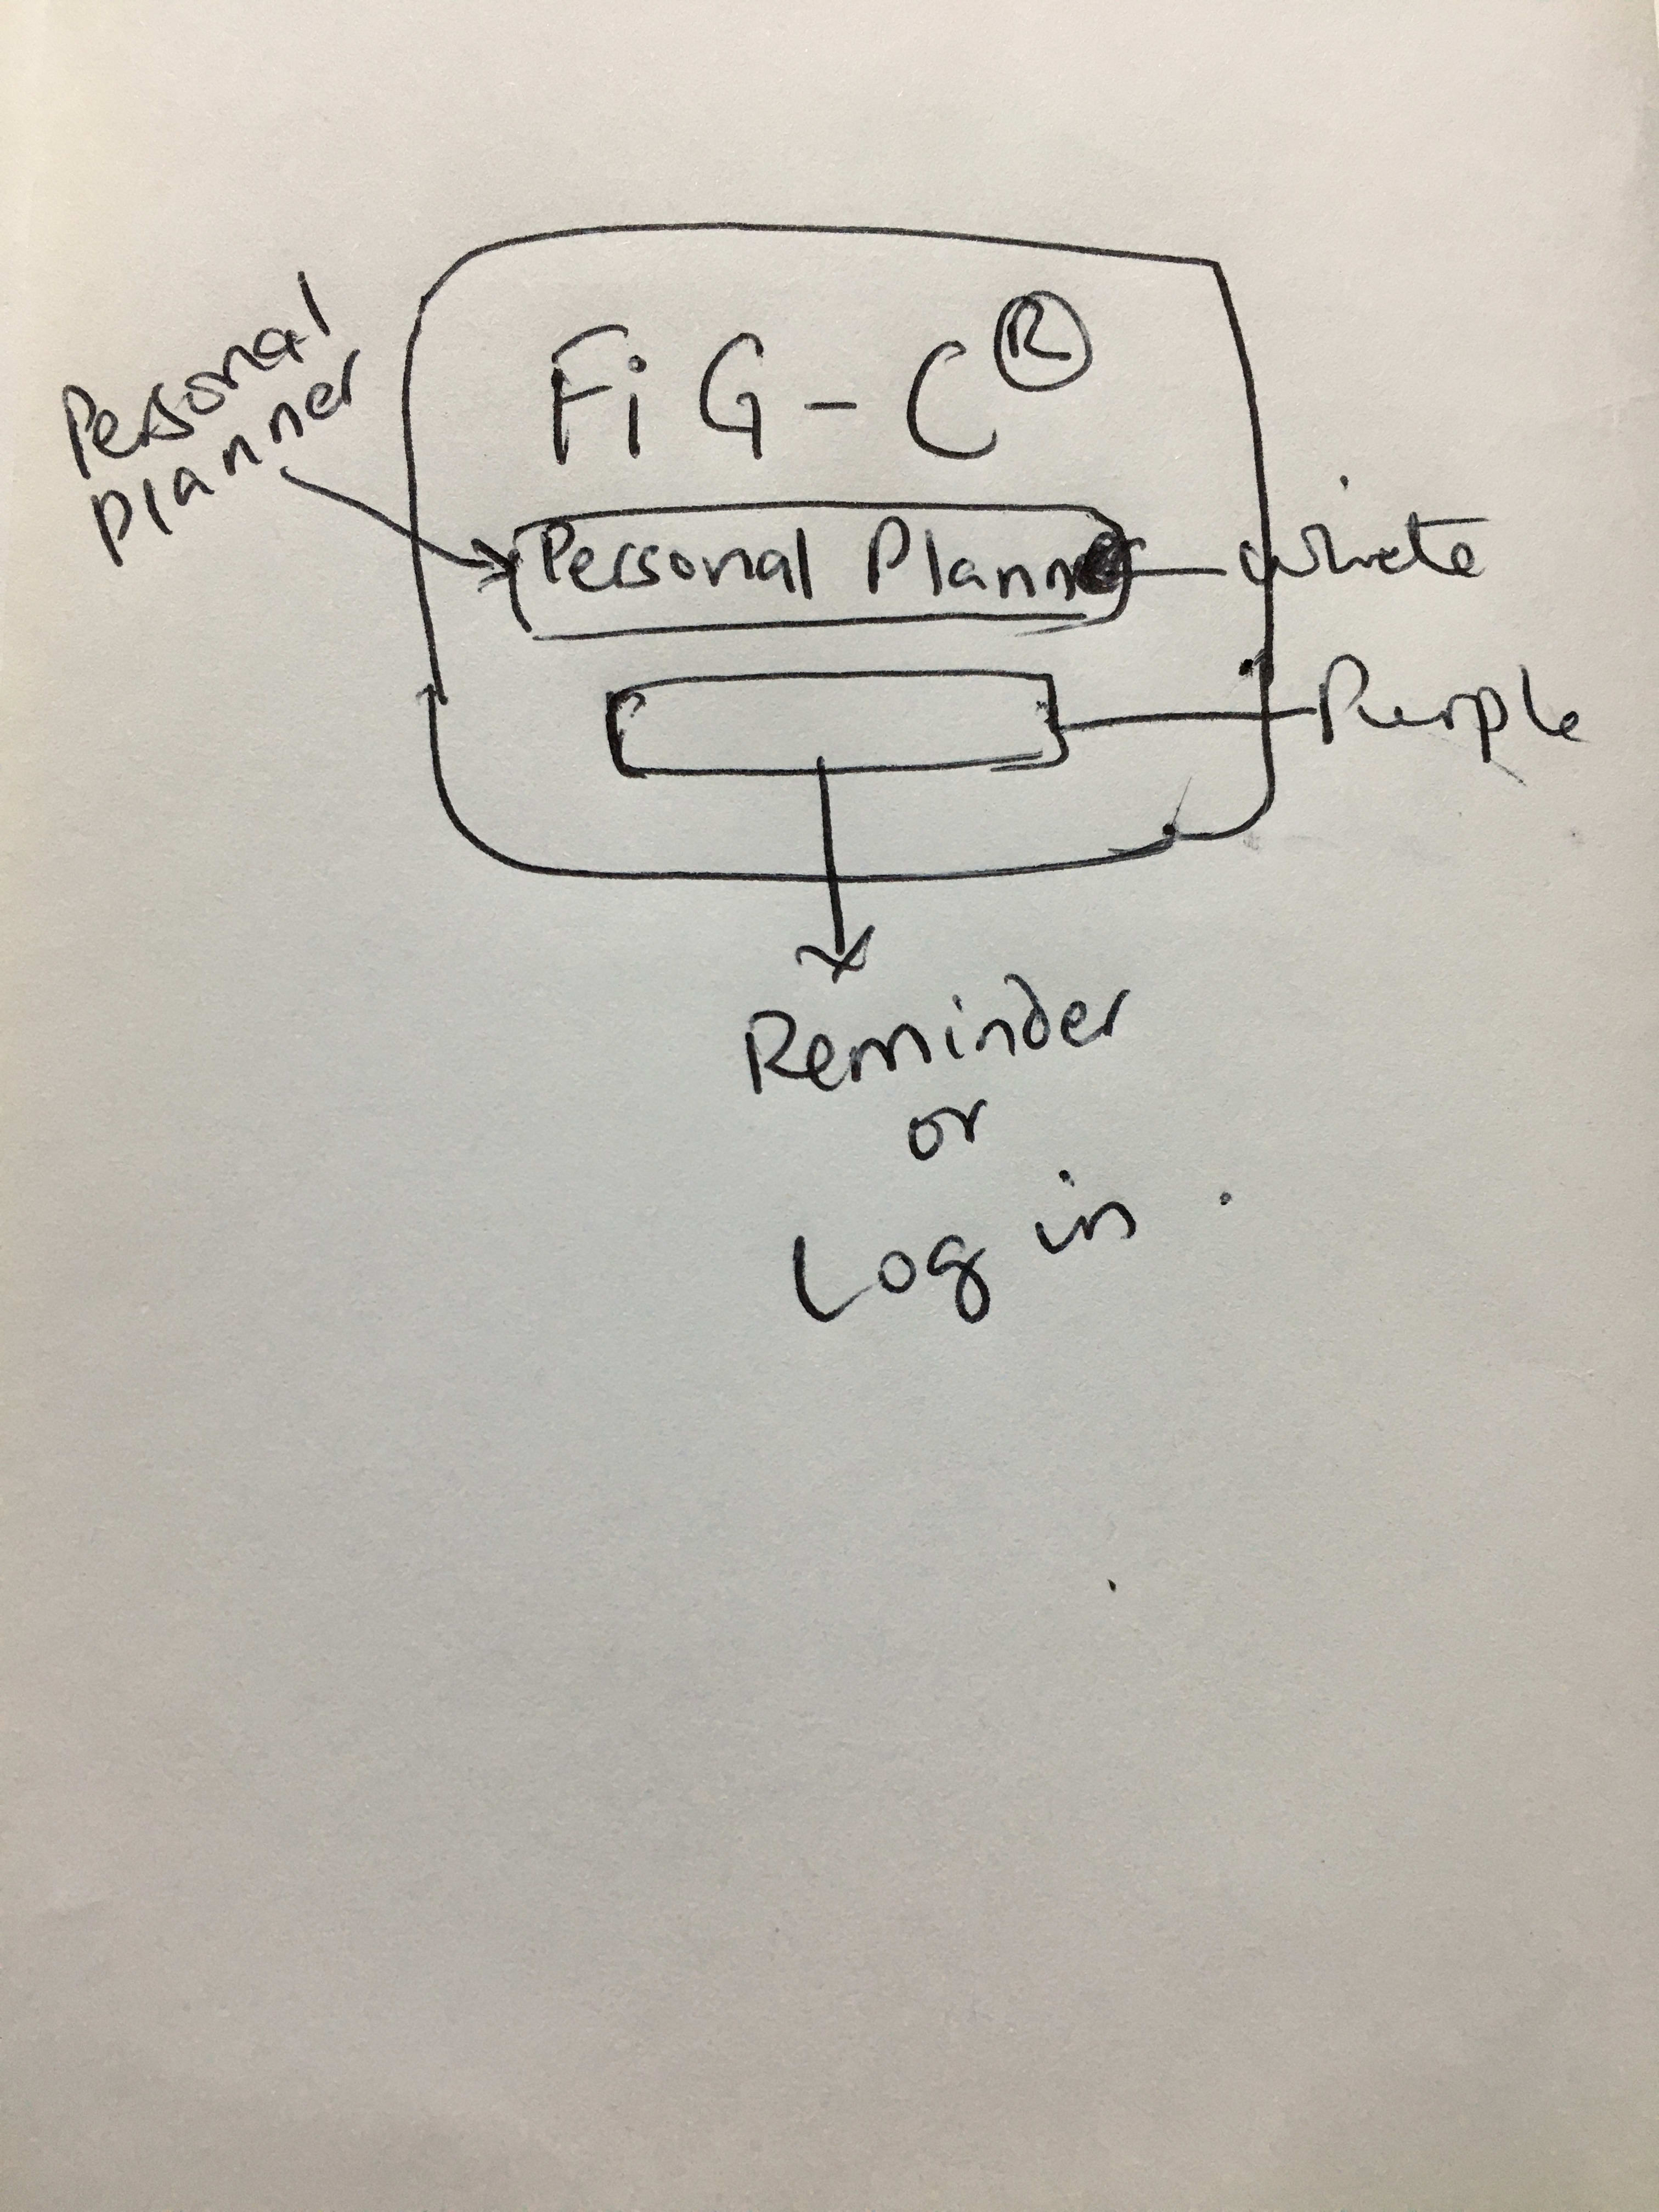 Personal
planner
FiG-C®
Personal Planner
White
Purple
Reminder
or
Log in.